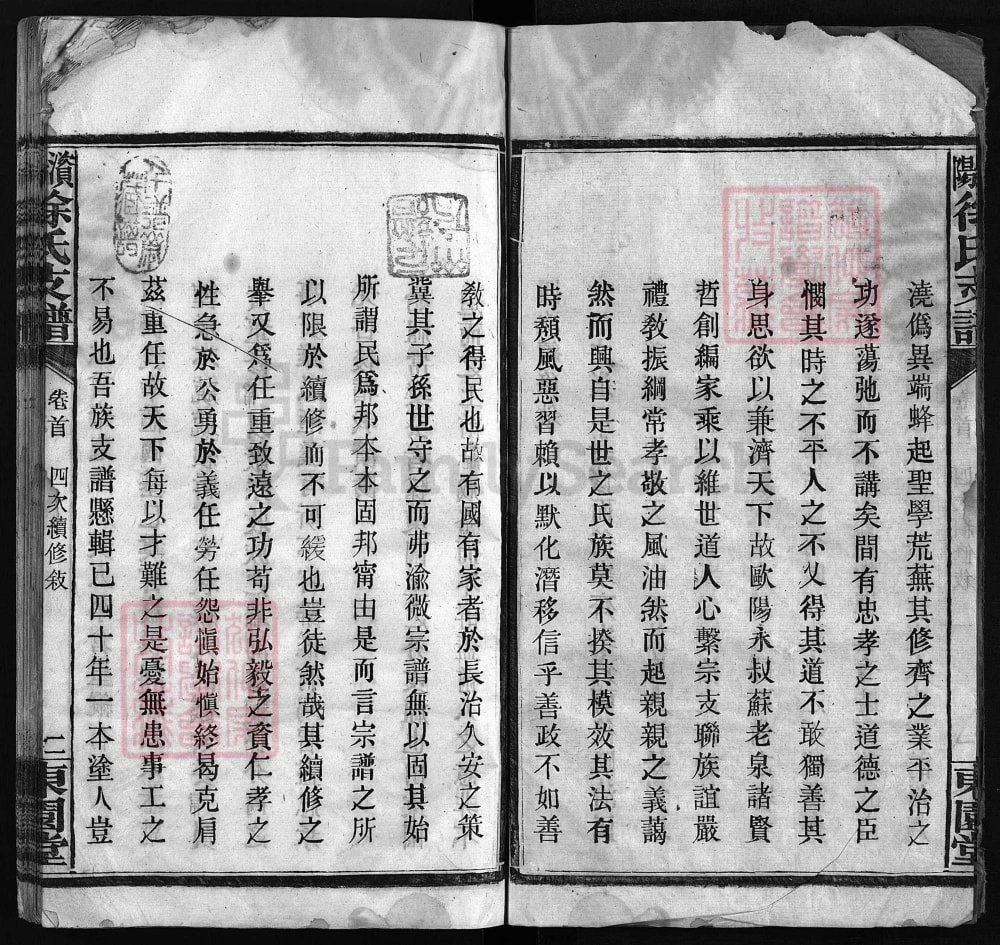 澆僞異端蜂起聖學荒蕪其修齊之業平治之
功遂蕩弛而不講矣間有忠孝之士道德之臣
憫其時之不平人之不乂得其道不敢獨善其
身思欲以兼濟天下故歐陽永叔蘇老泉諸賢
哲創編家乘以維世道人心繫宗支聯族誼嚴
禮敎振綱常孝敬之風油然而起親親之義藹
然而興自是世之氏族莫不揆其模效其法有
時頽風惡習賴以默化潛移信乎善政不如善
敎之得民也故有國有家者於長治久安之策
冀其子孫世守之而弗渝微宗譜無以固其始
所謂民爲邦本本固邦甯由是而言宗譜之所
以限於續修而不可緩也豈徒然哉其續修之
舉又爲任重致遠之功苟非弘毅之資仁孝之
性急於公勇於義任勞任怨愼始愼終曷克肩
茲重任故天下每以才難之是憂無患事工之
不易也吾族支譜懸輯已四十年一本塗人豈
徐氏支譜
卷首
四次續修敘
二
東園堂
徐氏支譜
東園堂
FamilySearch